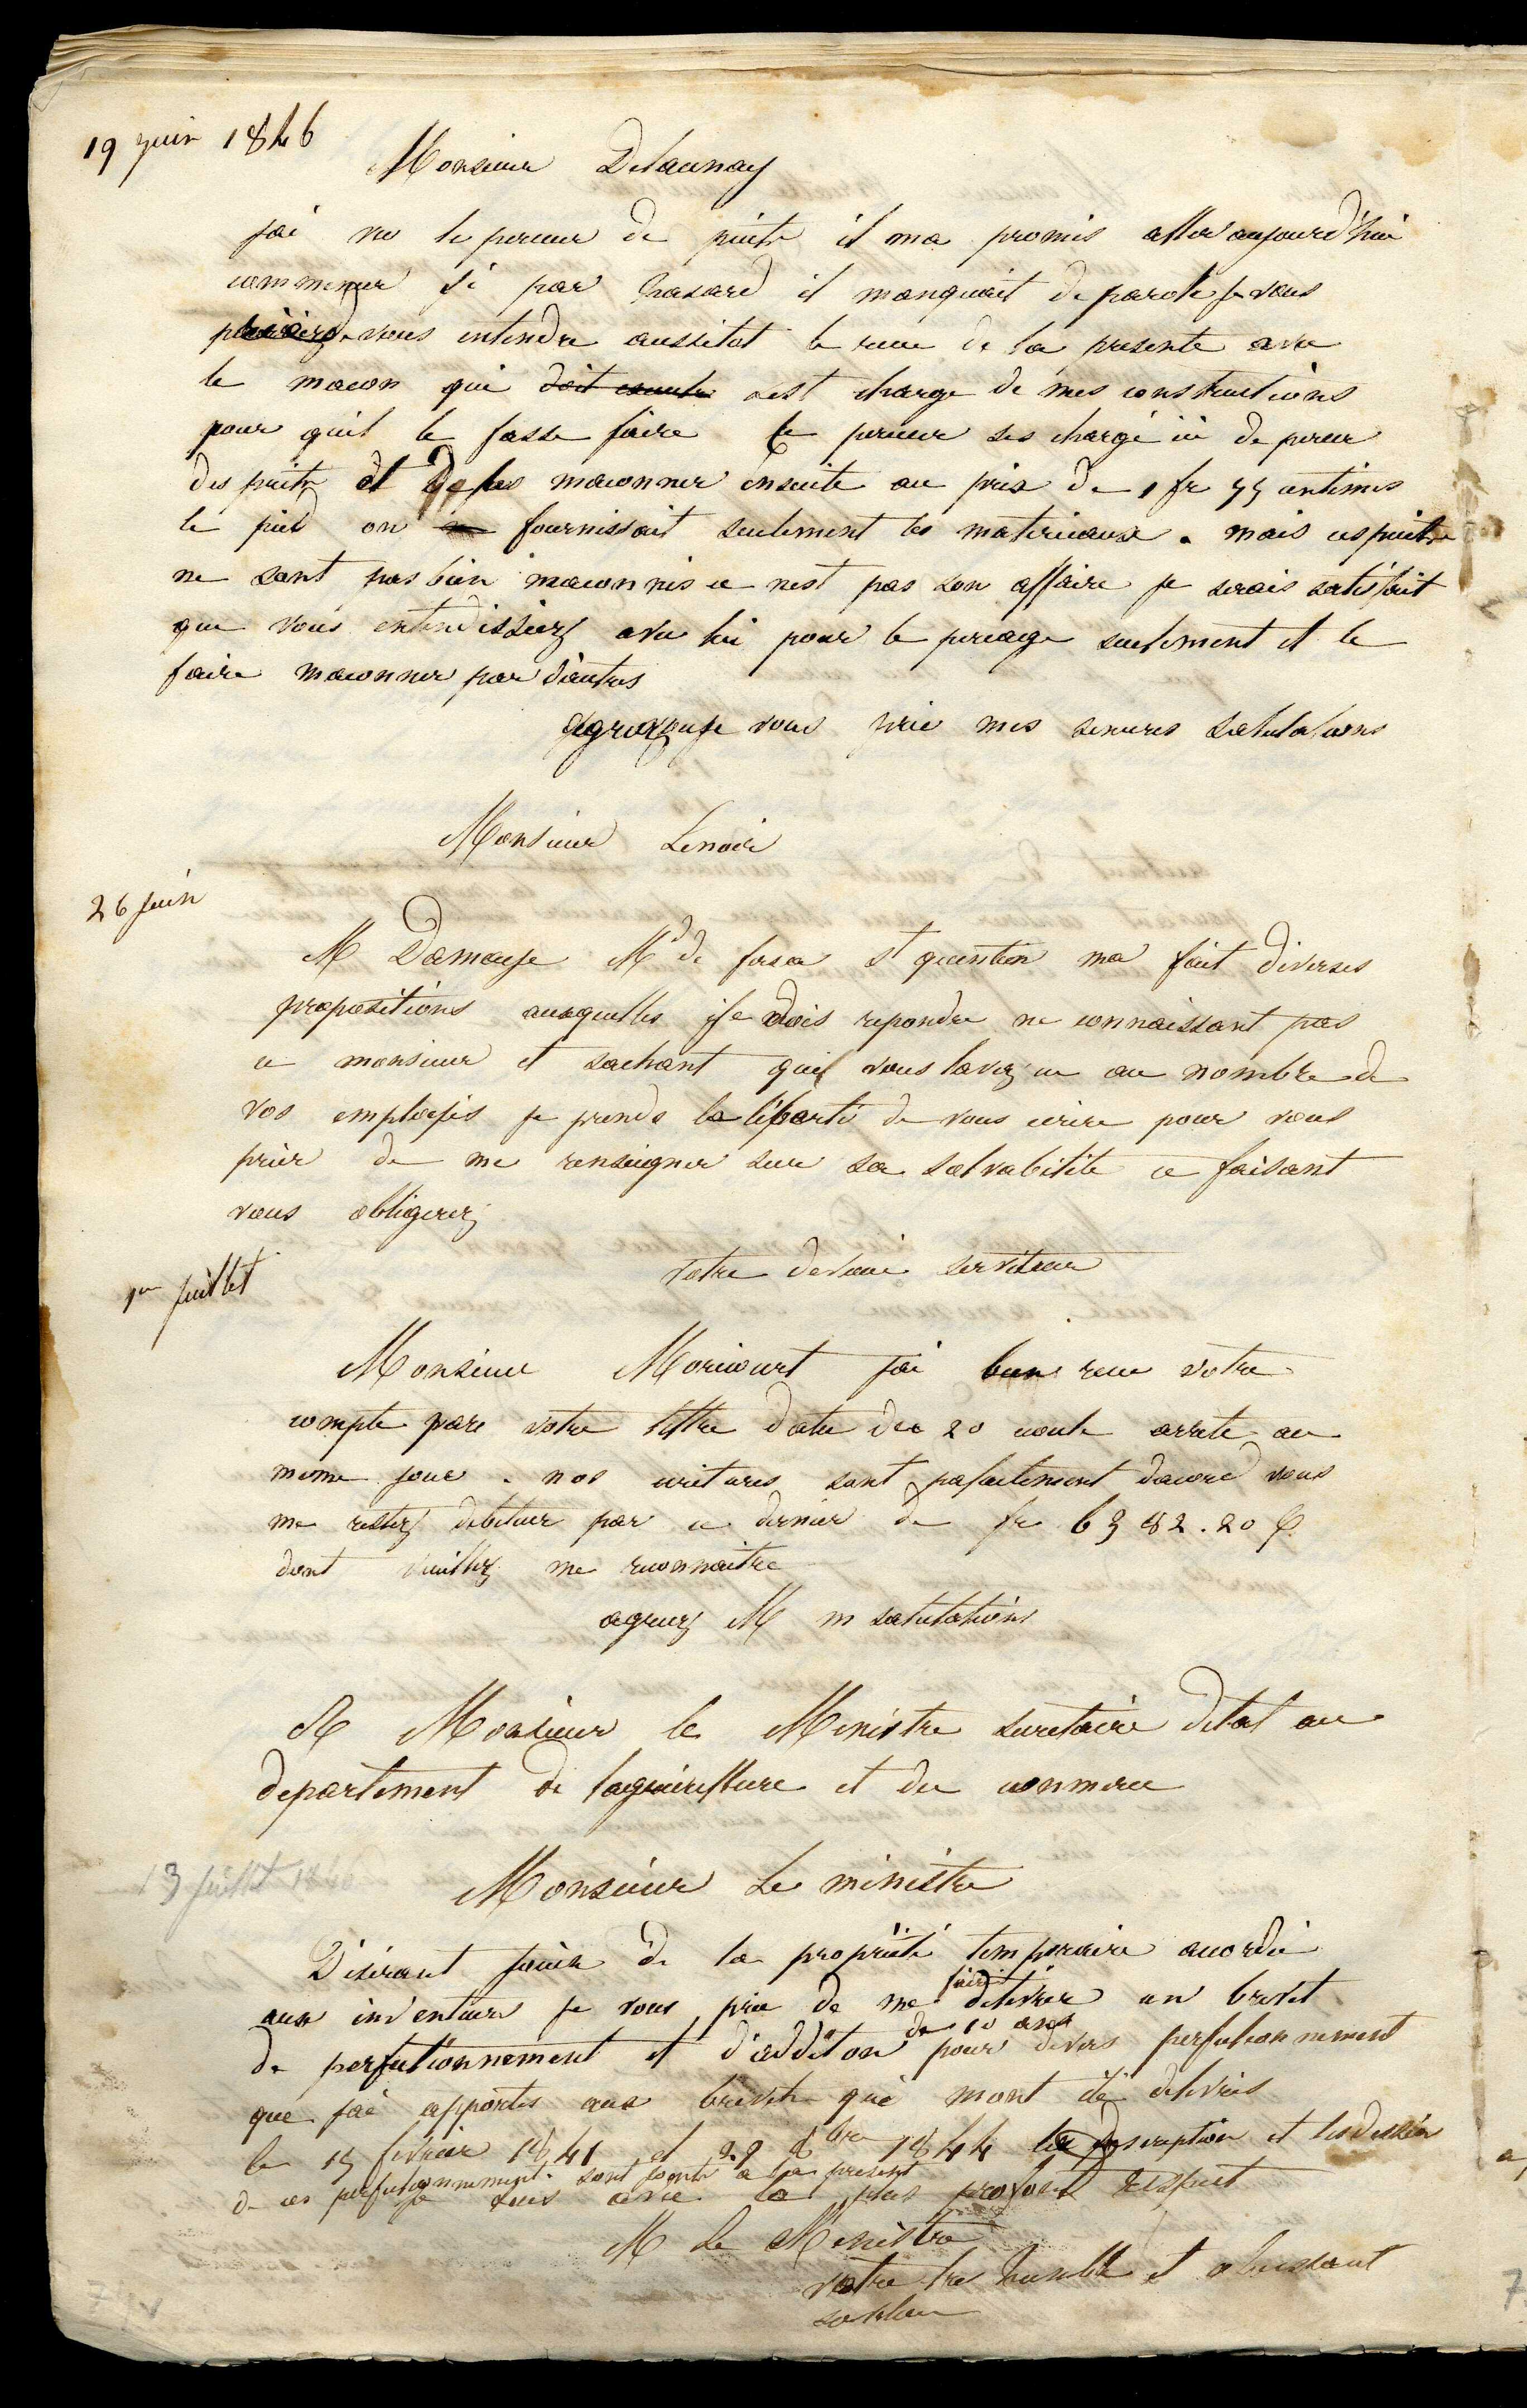 19 juin 1846
Monsieur Delaunay
jai vu le perceur de puits il ma promis aller aujourd'hui
commencer si par hasard il manquait de parole je vous
prierais de vous entendre aussitot le recu de la presente avec
le macon qui doit est charge de mes constructions
pour quil le fasse faire le perceur ses chargé ici de percer
des puits et de les maconner ensuite au prix de 1 fr 75 centimes
le pied on fournissait seulement les materieaux . mais ces puits
ne sont pas bien maconnes ce nest pas son affaire je serais satisfait
que vous entendissiez avec lui pour le percage seulement et le
faire maconner par d'autres
agreez je vous prie mes sinceres salutations
Monsieur Lenoir
26 juin
M Damouse Md de St quentin ma fait diverses
propositions auxquelles je dois repondre ne connaissant pas
ce monsieur et sachant que vous lavez eu au nombre de
vos employés je prends la liberté de vous ecrire pour vous
prier de me renseigner sur sa solvabilité ce faisant
vous obligerez
votre devoué serviteur
1er juillet
Monsieur Moricourt jai bien recu votre
compte par votre lettre datée du 20 ecoule arrete au
meme jour . nos ecritures sont parfaitement daccord vous
me restez debiteur par ce dernier de fr 6382.20 c
dont veuillez me reconnaitre
agreez M m salutations
A Monsieur le Ministre secretaire detat au
departement de lagriculture et du commerce
13 juillet 1846
Monsieur Le ministre
Désirant jouir de la propriété temporaire accordée
aux inventeurs je vous prie de me faire délivrer un brevet
de perfectionnement et d'addition de 10 ans pour divers perfectionnement
que jai apportés aux brevets qui mont été delivrés
le 15 fevrier 1841 et 22 8bre 1844 la description et les dessin
de ces perfectionnement sont joints a la present
je suis avec le plus profond respect
M Le Ministre
votre tres humble et obeissant